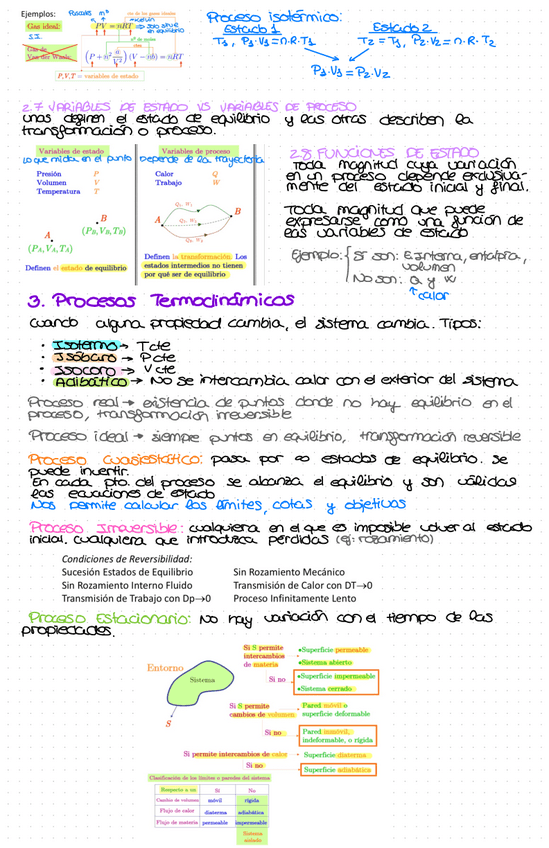 Ejemplos:
Gas ideal:
PV = nRT
S.I.
Pascales
en equilibrio
Gas de
Van der Waals:
(P + n² a/V²) (V − nb) = nRT
P,V,T = variables de estado
Proceso isotérmico:
Estado 1
T₁, P₁·V₁ = n·R·T₁
Estado 2
T₂ = T₁, P₂·V₂ = n·R·T₂
P₁·V₁ = P₂·V₂
2.7 VARIABLES DE ESTADO VS VARIABLES DE PROCESO
unas definen el estado de equilibrio y las otras describen la
transformación o proceso.
Variables de estado
Lo que mida en el punto
Presión P
Volumen V
Temperatura T
B
(PB, VB, TB)
A
(PA, VA, TA)
Definen el estado de equilibrio
Variables de proceso
Depende de la trayectoria
Calor Q
Trabajo W
Q₁, W₁
A
B
Definen la transformación. Los
estados intermedios no tienen
por qué ser de equilibrio
2.8 FUNCIONES DE ESTADO
Toda magnitud cuya variación
en un proceso depende exclusiva-
mente del estado inicial y final.
Toda magnitud que puede
expresarse como una función de
las variables de estado
Ejemplo:
Sí son: E interna, entalpía,
volumen
No son: Q y W
calor
3. Procesos Termodinámicos
Cuando alguna propiedad cambia, el sistema cambia. Tipos:
· Isotermo → T cte
· Isóbaro → P cte
· Isocoro → V cte
· Adibático → No se intercambia calor con el exterior del sistema
Proceso real → existencia de puntos donde no hay equilibrio en el
proceso, transformación irreversible
Proceso ideal → siempre puntos en equilibrio, transformación reversible
Proceso cuasiestático: pasa por ∞ estados de equilibrio. Se
puede invertir.
En cada pto. del proceso se alcanza el equilibrio y son válidas
las ecuaciones de estado
Nos permite calcular los límites, cotas y objetivos
Proceso Irreversible: cualquiera en el que es imposible volver al estado
inicial. Cualquiera que introduzca pérdidas (ej: rozamiento)
Condiciones de Reversibilidad:
Sucesión Estados de Equilibrio
Sin Rozamiento Mecánico
Sin Rozamiento Interno Fluido
Transmisión de Calor con DT→0
Transmisión de Trabajo con Dp→0
Proceso Infinitamente Lento
Proceso Estacionario: No hay variación con el tiempo de las
propiedades.
Entorno
Sistema
S
Si S permite
intercambios
de materia
•Superficie permeable
•Sistema abierto
Si no
•Superficie impermeable
•Sistema cerrado
Si S permite
cambios de volumen
Pared móvil o
superficie deformable
Si no
Pared inmóvil,
indeformable, o rígida
Si permite intercambios de calor
Superficie diaterma
Si no
Superficie adiabática
Clasificación de los límites o paredes del sistema
Respecto a un Sí No
Cambio de volumen móvil rígida
Flujo de calor diaterma adiabática
Flujo de materia permeable impermeable
Sistema
aislado